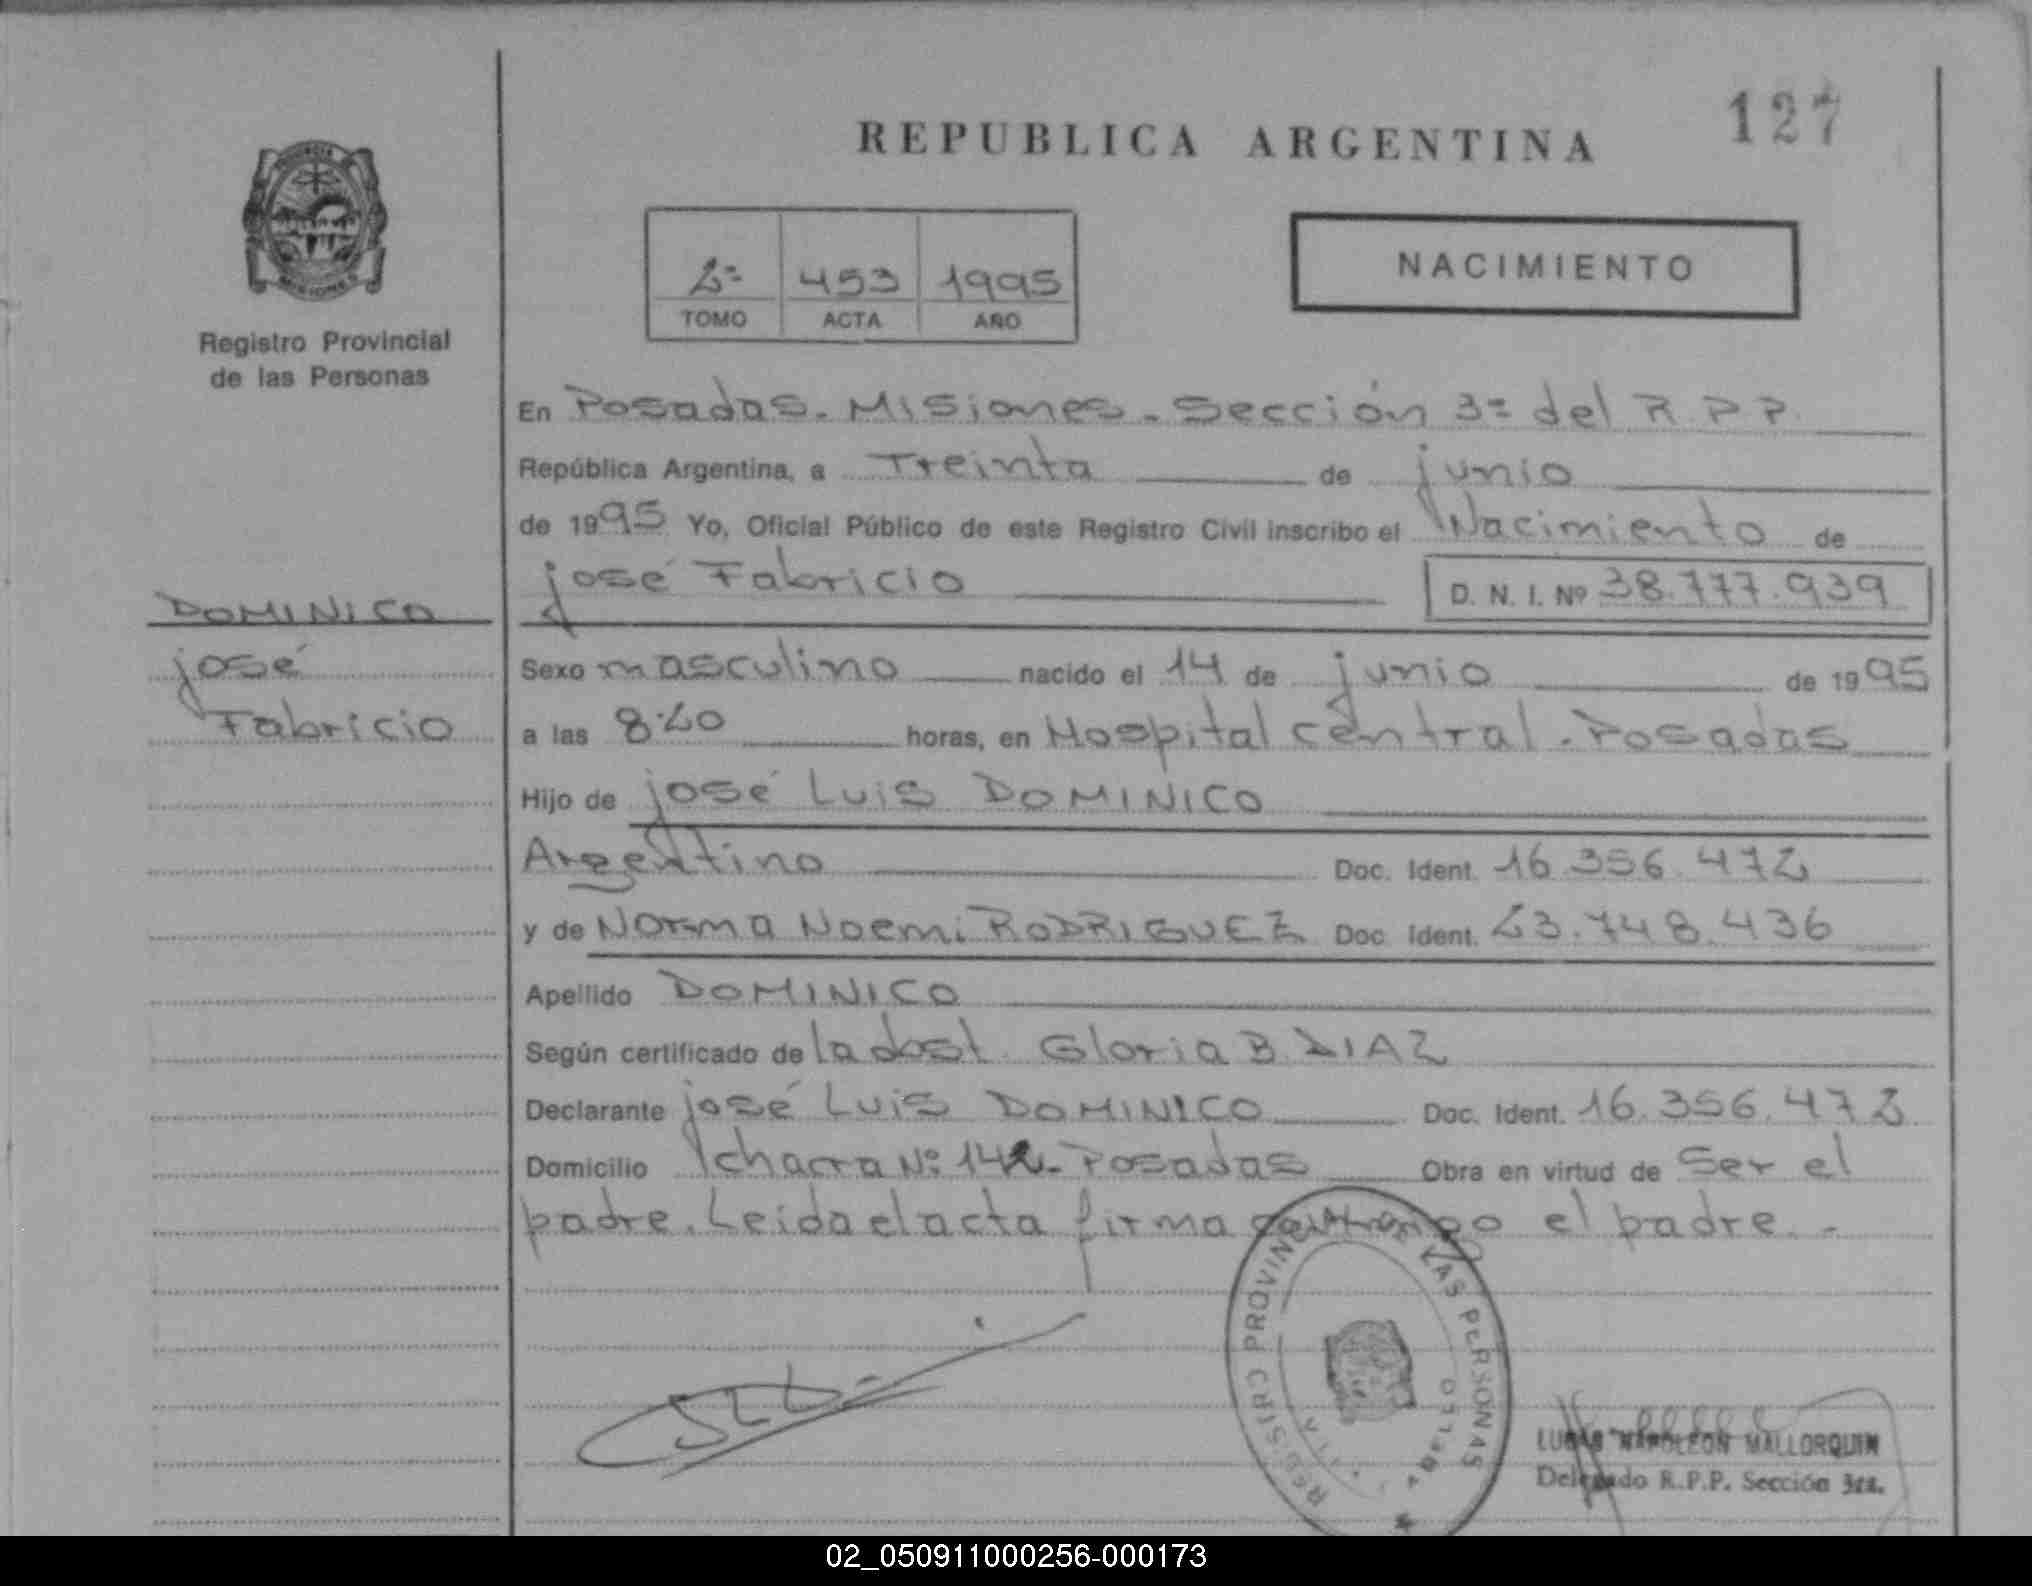 REPUBLICA ARGENTINA
127
Registro Provincial
de las Personas
2º 453 1995
TOMO ACTA AÑO
NACIMIENTO
En Posadas. Misiones. Sección 3º del R.P.P.
República Argentina, a Treinta de junio
de 1995 Yo, Oficial Público de este Registro Civil inscribo el Nacimiento de
José Fabricio
D. N. I. Nº 38.777.939
DOMINICO
José
Fabricio
Sexo masculino nacido el 14 de junio de 1995
a las 8:20 horas, en Hospital central. Posadas
Hijo de José Luis DOMINICO
Argentino Doc. Ident. 16.356.472
y de Norma Noemi RODRIGUEZ Doc. Ident. 23.748.436
Apellido DOMINICO
Según certificado de la obst. Gloria B. DIAZ
Declarante José Luis DOMINICO Doc. Ident. 16.356.472
Domicilio chacra Nº 142. Posadas Obra en virtud de Ser el
padre. Leida el acta firma conmigo el padre. -
REGISTRO PROVINCIAL DE LAS PERSONAS
LUCAS NAPOLEON MALLORQUIN
Delegado R.P.P. Sección 3ra.
02_050911000256-000173